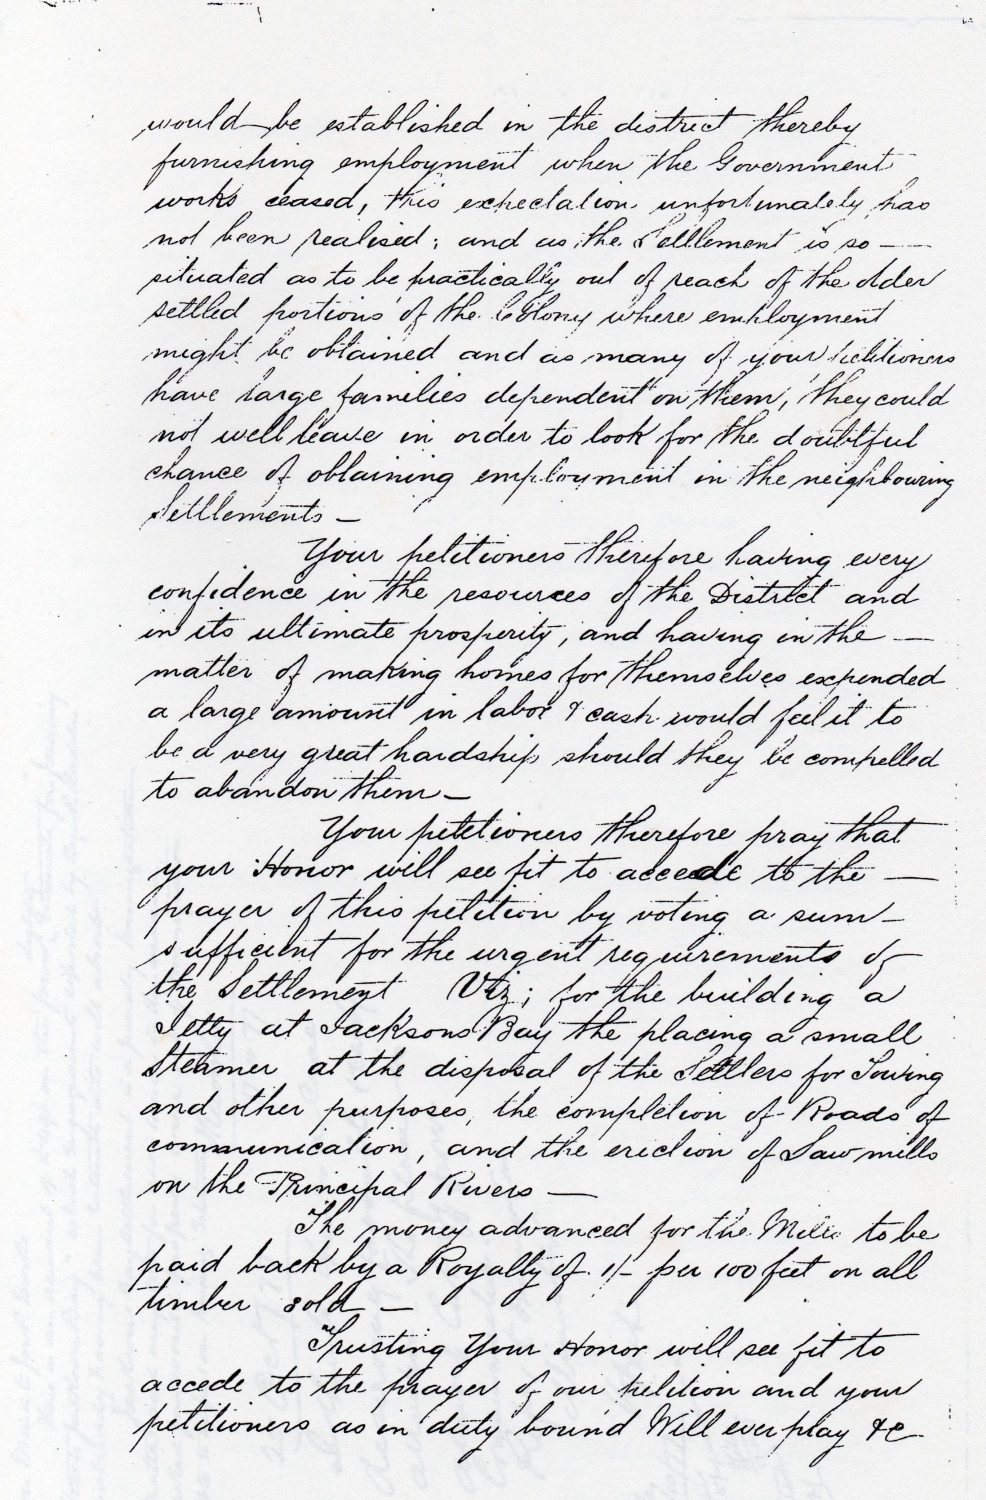 would be established in the district thereby
furnishing employment when the Government
works ceased, this expectation unfortunately has
not been realised; and as the Settlement is so —
situated as to be practically out of reach of the older
settled portions of the Colony where employment
might be obtained and as many of your Petitioners
have large families dependent on them, they could
not well leave in order to look for the doubtful
chance of obtaining employment in the neighbouring
Settlements —
Your petitioners therefore having every
confidence in the resources of the District and
in its ultimate prosperity, and having in the —
matter of making homes for themselves expended
a large amount in labor & cash would feel it to
be a very great hardship should they be compelled
to abandon them —
Your petetioners therefore pray that
your Honor will see fit to accede to the —
prayer of this petition by voting a sum —
sufficient for the urgent requirements of
the Settlement Viz; for the building a
Jetty at Jacksons Bay the placing a small
Steamer at the disposal of the Settlers for Towing
and other purposes, the completion of Roads of
communication, and the erection of Saw mills
on the Principal Rivers —
The money advanced for the Mills to be
paid back by a Royalty of 1/- per 100 feet on all
timber sold —
Trusting Your Honor will see fit to
accede to the prayer of our petition and your
petitioners as in duty bound Will ever play &c